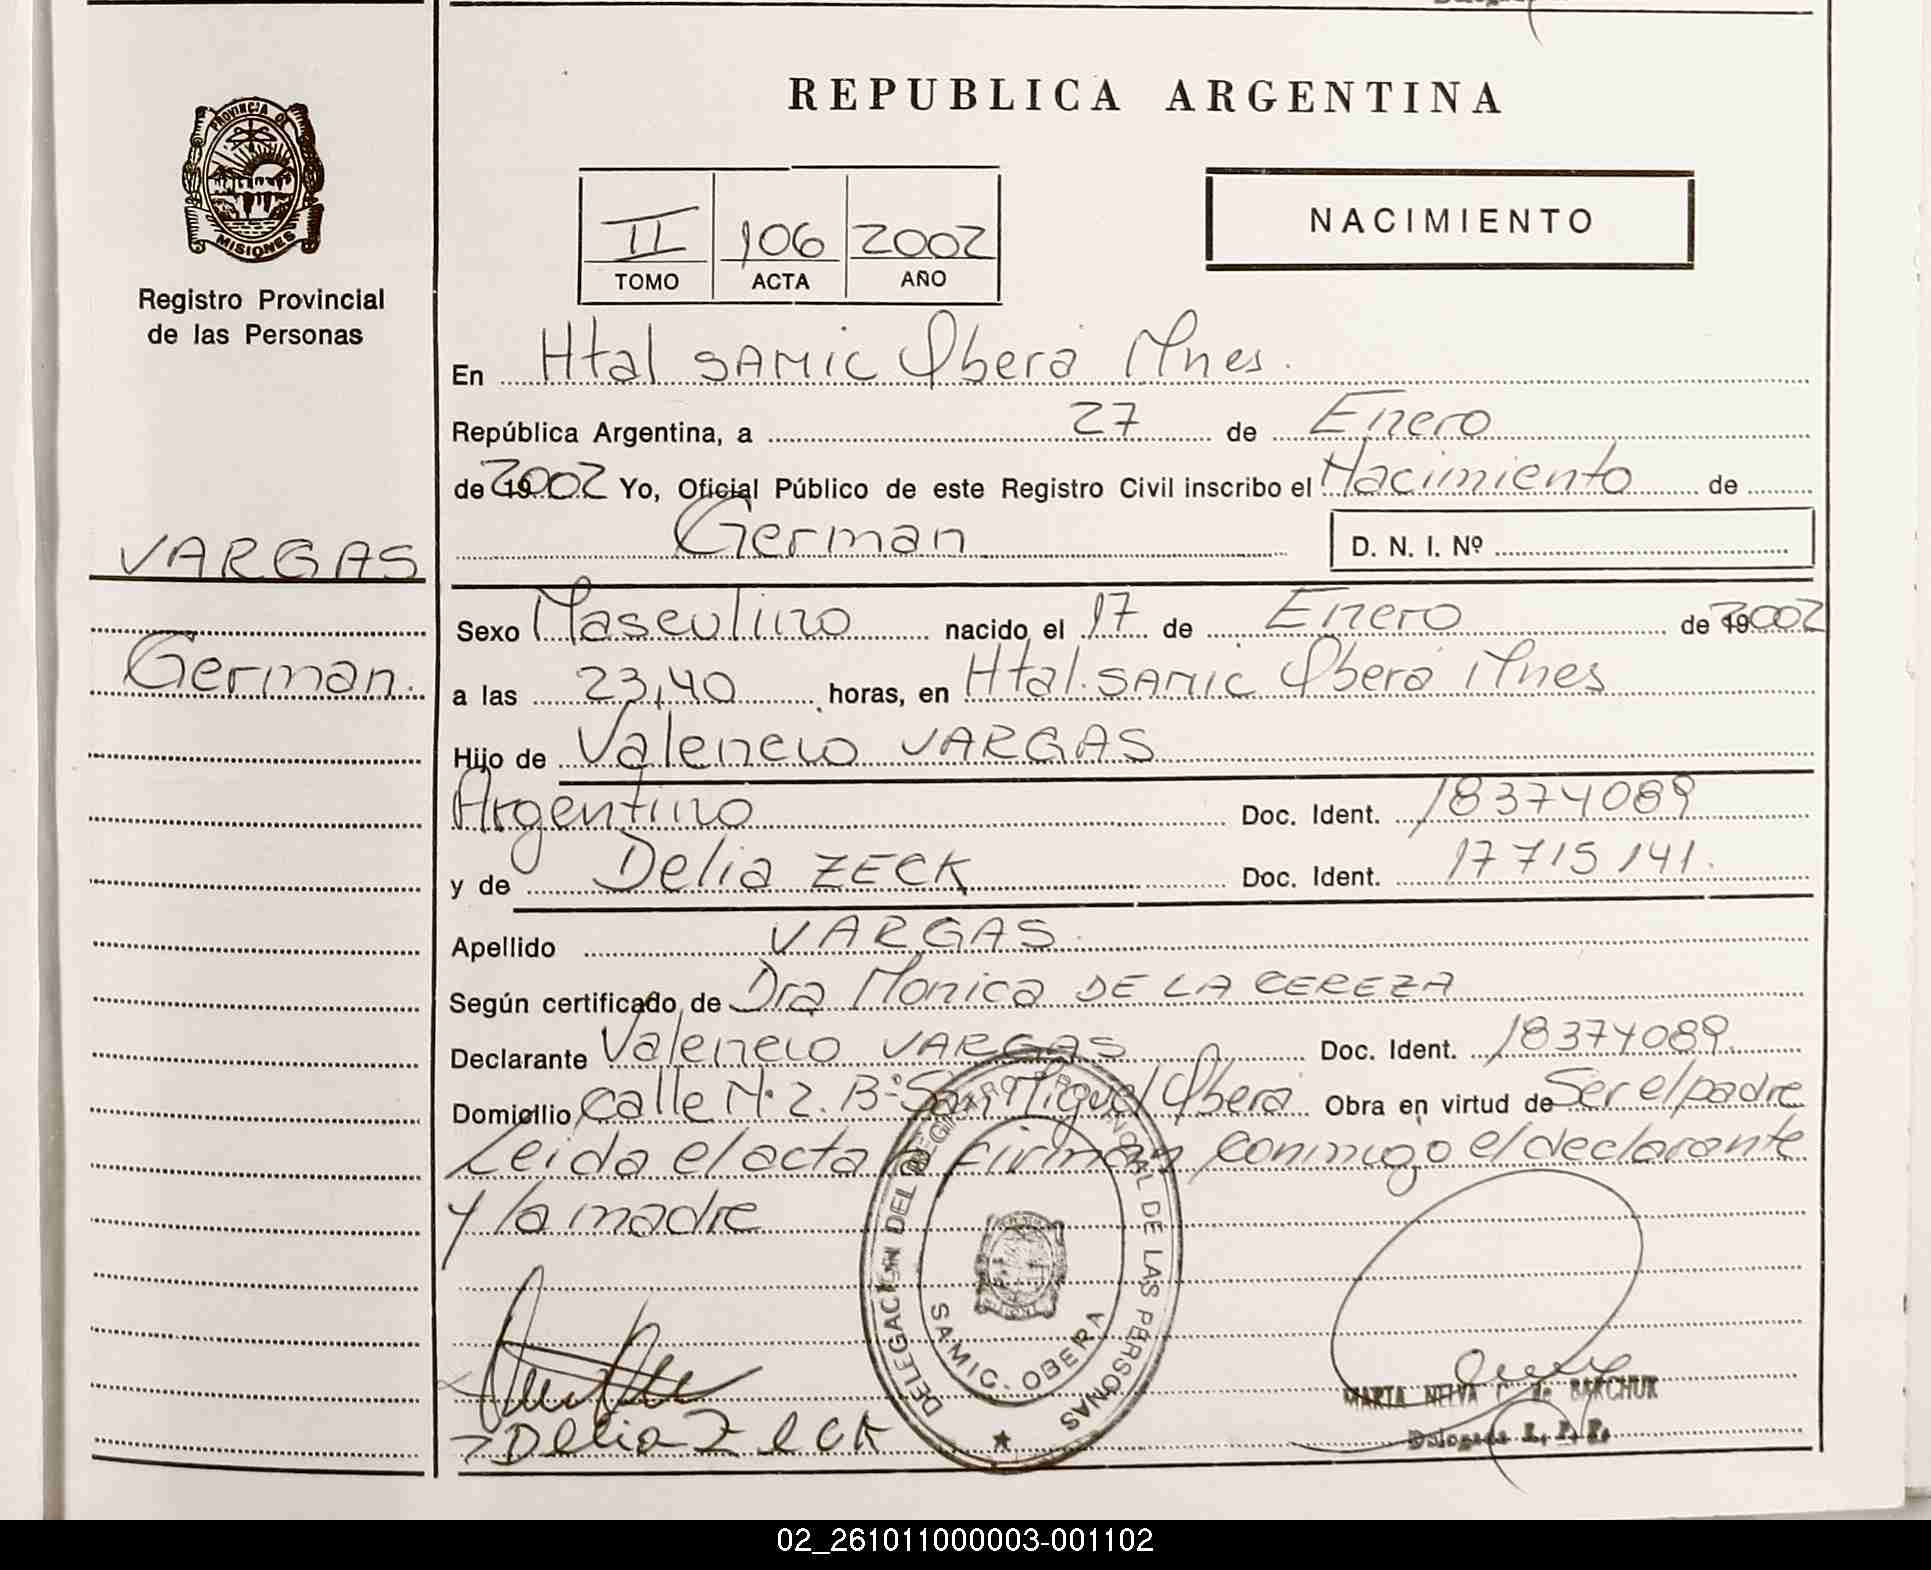 REPUBLICA ARGENTINA
PROVINCIA DE
MISIONES
Registro Provincial
de las Personas
II 106 2002
TOMO ACTA AÑO
NACIMIENTO
En Htal SAMIC Oberá Mnes.
República Argentina, a 27 de Enero
de 2002 Yo, Oficial Público de este Registro Civil inscribo el Nacimiento de
German D. N. I. Nº
VARGAS
German.
Sexo Masculino nacido el 17 de Enero de 2002
a las 23,40 horas, en Htal. SAMIC Oberá Mnes
Hijo de Valencio VARGAS
Argentino Doc. Ident. 18374089
y de Delia ZECK Doc. Ident. 17715141.
Apellido VARGAS.
Según certificado de Dra Monica DE LA CEREZA
Declarante Valencio VARGAS Doc. Ident. 18374089.
Domicilio Calle N. 2. Bº San Miguel Oberá Obra en virtud de Ser el padre
Leida el acta la firman conmigo el declarante
y la madre
DELEGACION DEL REGISTRO PROVINCIAL DE LAS PERSONAS
SAMIC. OBERA
MARTA NELVA C. de BARCHUK
Delegada R. P. P.
Delia Zeck
02_261011000003-001102